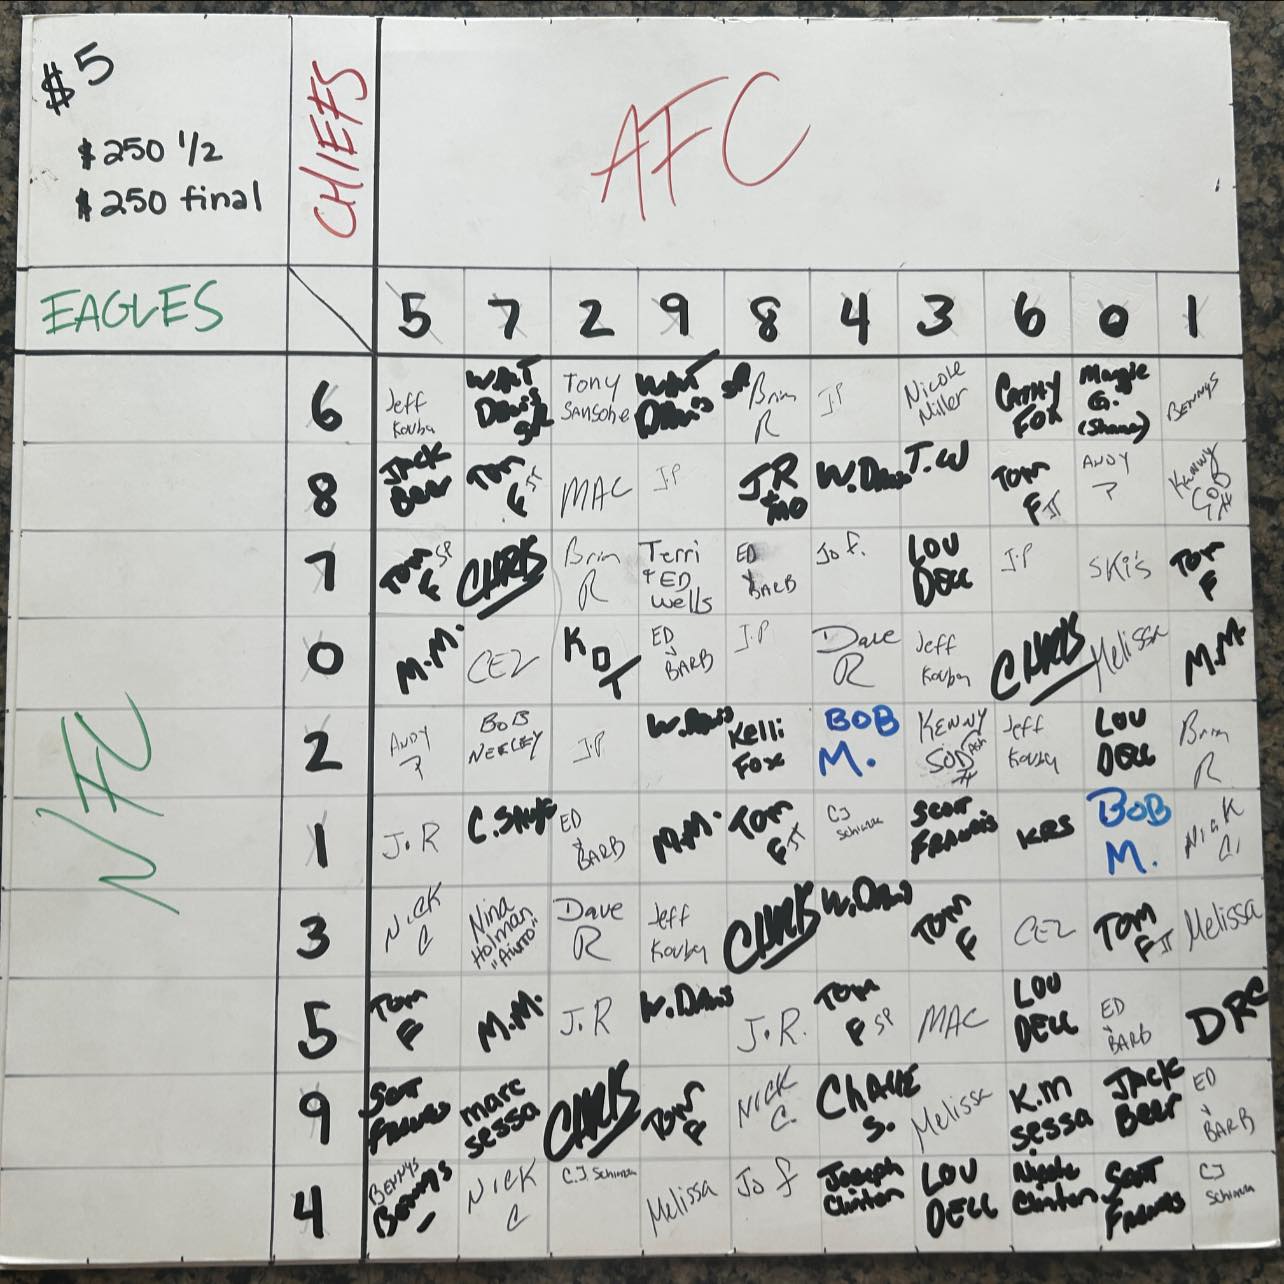 $5
$250 1/2
$250 final
CHIEFS
AFC
EAGLES
5 7 2 9 8 4 3 6 0 1
NFC
6 Jeff Kouba W.M Davis SR Tony SANSONE W.M Davis SR Brian R J.P Nicole Miller CATHY FOX Margie G. (Shana) BENNYS
8 JACK Beer TOM F II MAC J.P J.R + MO W.Davis T.W TOM F II ANDY ? KENNY
7 TOM F SP CHRIS Brian R Terri + ED Wells ED + BARB Jo f. LOU DELL J.P SKI'S TOM F
0 M.M. CEZ KDT ED + BARB J.P Dave R Jeff Kouba CHRIS Melissa M.M.
2 ANDY ? BOB NEELEY J.P W.Davis Kelli Fox BOB M. KENNY Jeff Kouba LOU DELL Brian R
1 J.R ED + BARB M.M. TOM F II CJ SCOTT FRANCIS KRS BOB M. NICK C.
3 NICK C Nina Holman "AUTO" Dave R Jeff Kouba CHRIS W.Davis TOM F CEZ TOM F II Melissa
5 TOM F M.M. J.R W.Davis J.R. TOM F SP MAC LOU DELL ED + BARB DRC
9 marc sessa CHRIS TOM F NICK C. CHALIE S. Melissa K.M sessa JACK BEER ED + BARB
4 BENNYS Bennys NICK C C.J. Melissa Jo f Joseph Clinton LOU DELL Nicole Clinton SCOTT CJ